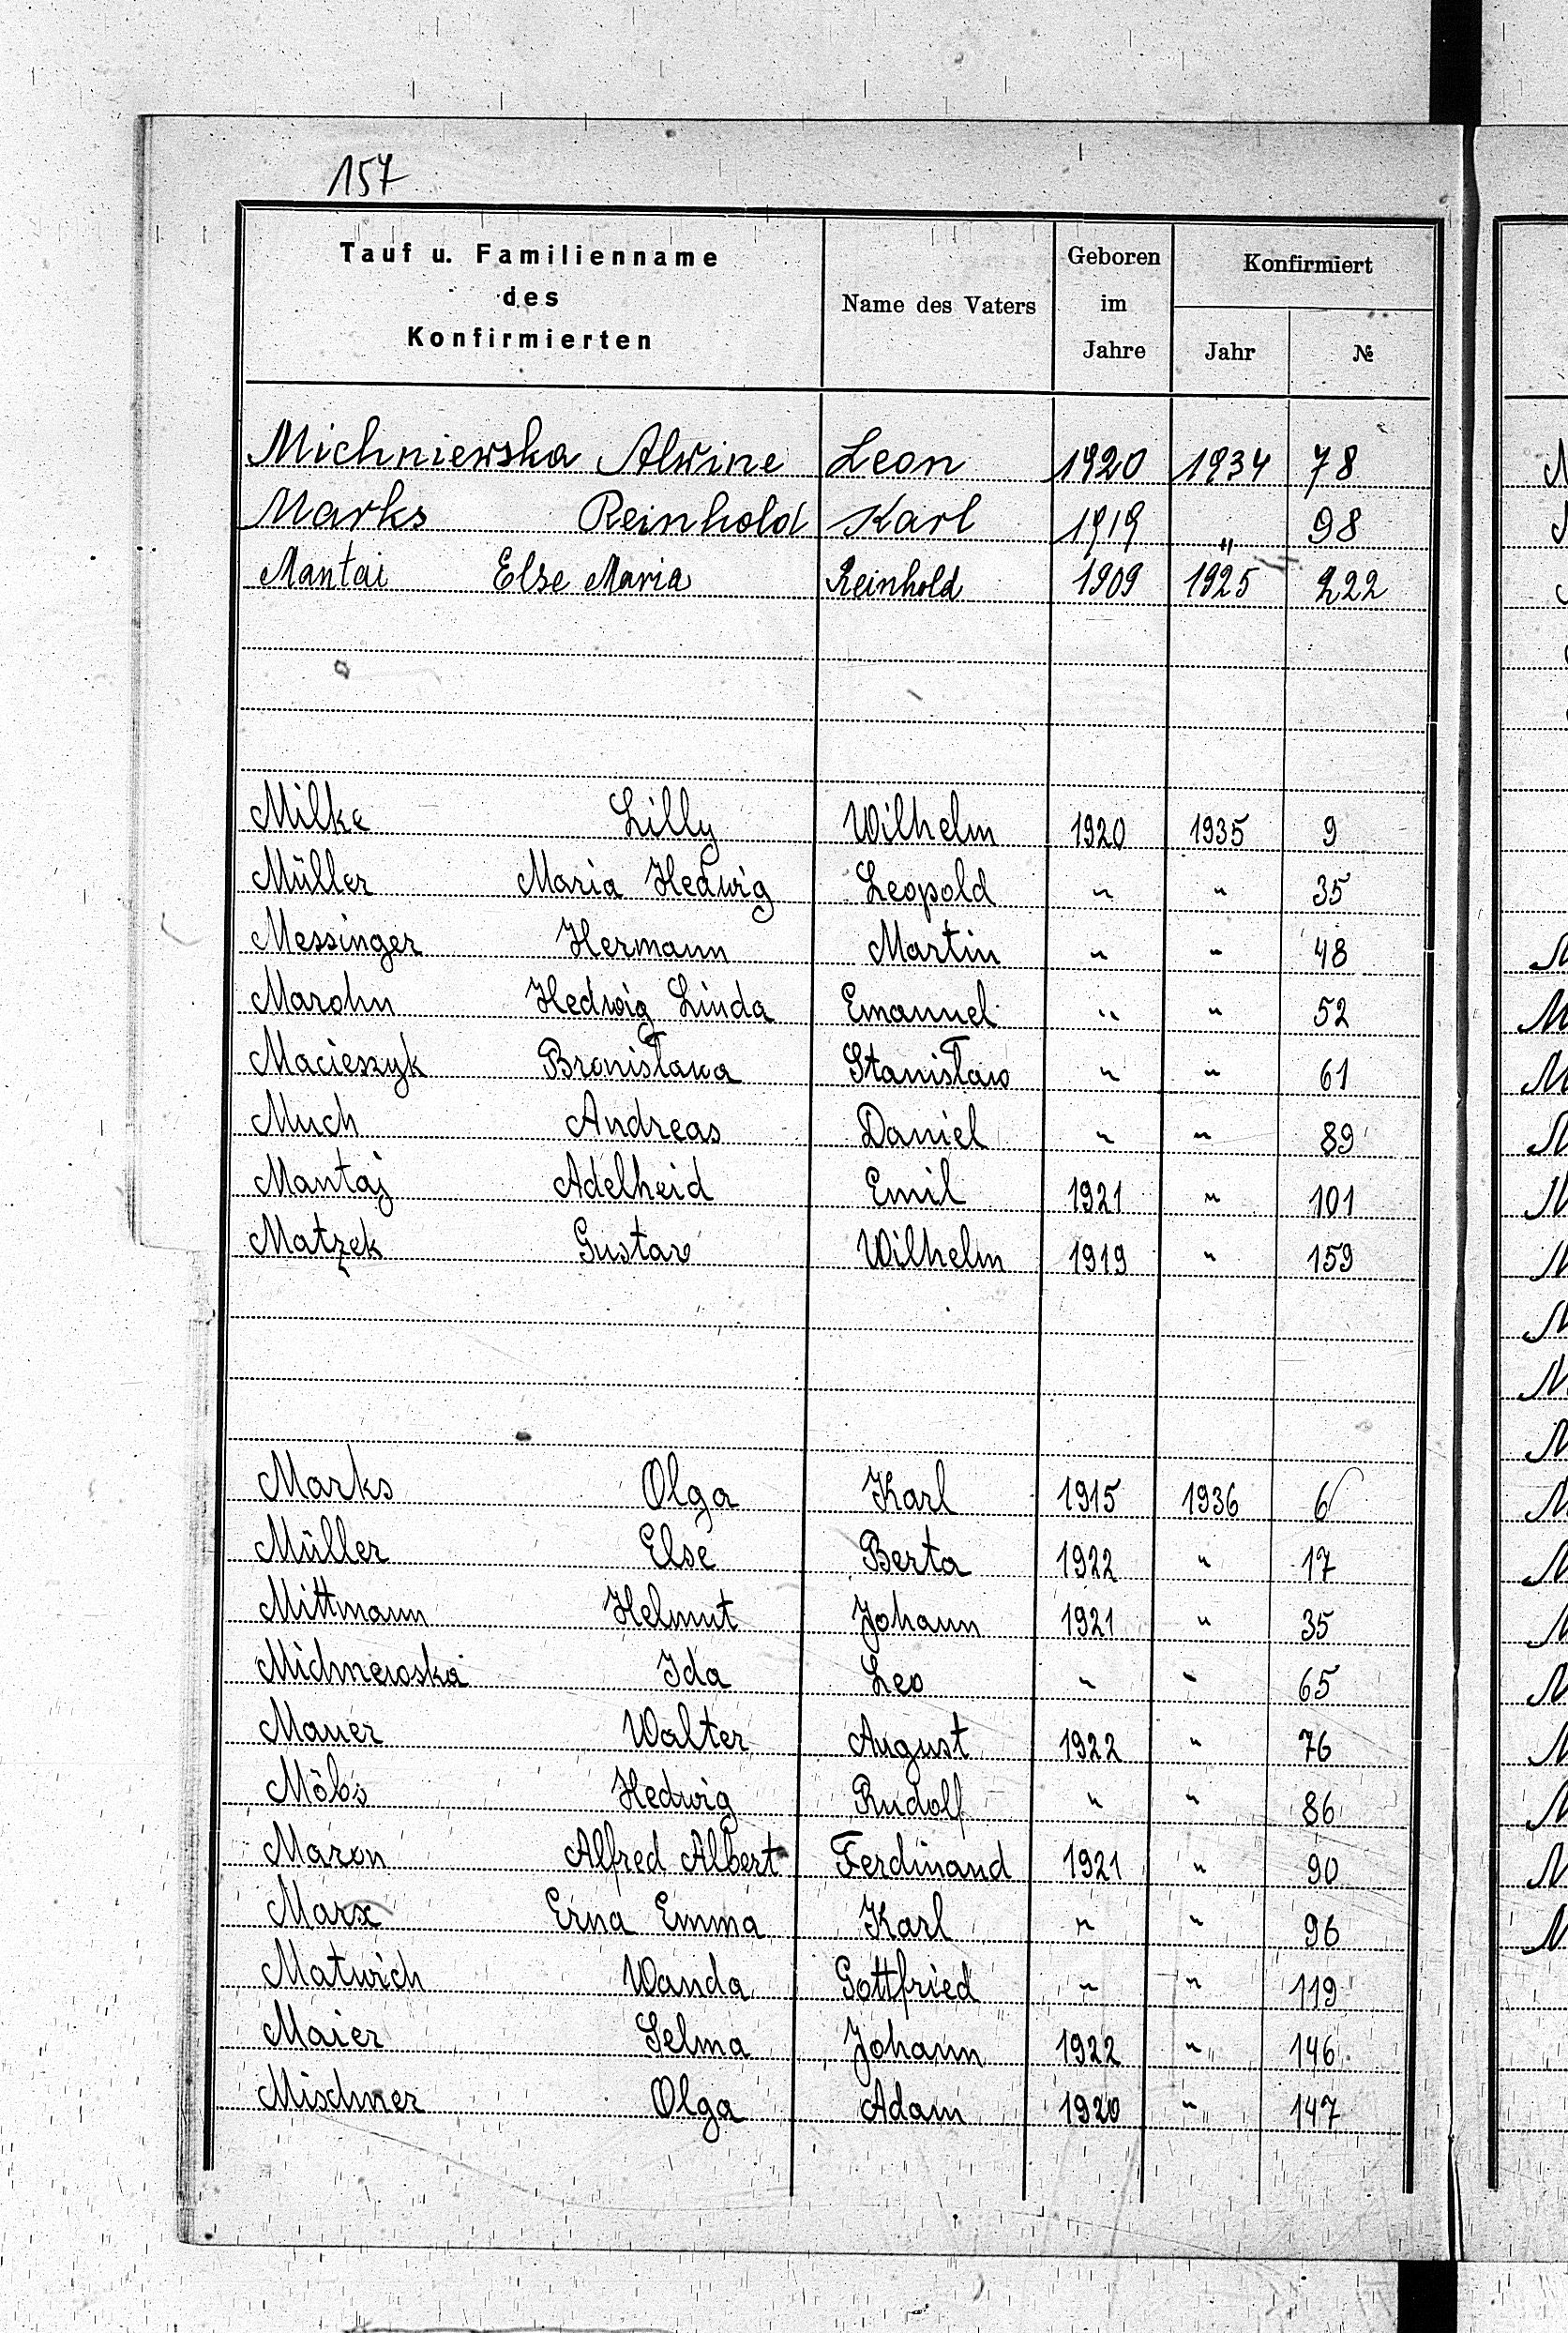 157
Tauf u. Familienname des Konfirmierten | Name des Vaters | Geboren im Jahre | Konfirmiert Jahr | №
Michniewska Alwine Leon 1920 1934 78
Marks Reinhold Karl 1919 " 98
Mantai Else Maria Reinhold 1909 1925 222
Milke Lilly Wilhelm 1920 1935 9
Müller Maria Hedwig Leopold " " 35
Messinger Hermann Martin " " 48
Marohn Hedwig Linda Emanuel " " 52
Macieszyk Bronisława Stanisław " " 61
Much Andreas Daniel " " 89
Mantaj Adelheid Emil 1921 " 101
Matzek Gustav Wilhelm 1919 " 159
Marks Olga Karl 1915 1936 6
Müller Else Berta 1922 " 17
Mittmann Helmut Johann 1921 " 35
Michnewska Ida Leo " " 65
Mauer Walter August 1922 " 76
Möbs Hedwig Rudolf " " 86
Maron Alfred Albert Ferdinand 1921 " 90
Marx Erna Emma Karl " " 96
Matwich Wanda Gottfried " " 119
Maier Selma Johann 1922 " 146
Mischner Olga Adam 1920 " 147